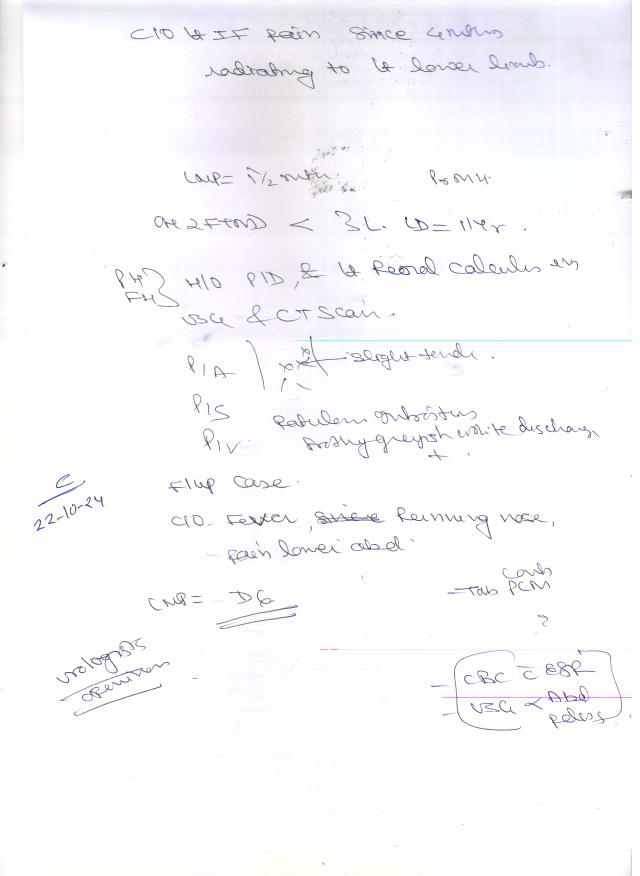 C/O Lt IF pain since 4 mths
radiating to Lt lower limb.
LMP= 1 1/2 mth.
OH 2FTND < 3L. LD= 11Yr.
PH
FH } H/O PID, & Lt Renal calculus in
USG & CT Scan.
P/A slight tende.
P/S
P/V
Frothy greyish white discharge
+
C
22-10-24
F/up case.
C/O Fever, since Running nose,
- pain lower abd
LMP= D6
- Tab PCM
?
urologists
openion
- CBC C ESR
- USG Abd
pelvis